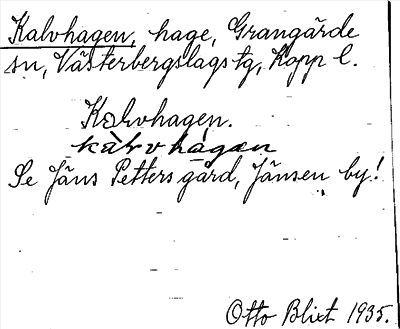 Kalvhagen, hage, Grangärde
sn, Västerbergslags tg, Kopp l.
Kalvhagen.
kàlvhágen
Se Jäns Petters gård, Jänsen by!
Otto Blixt 1935.